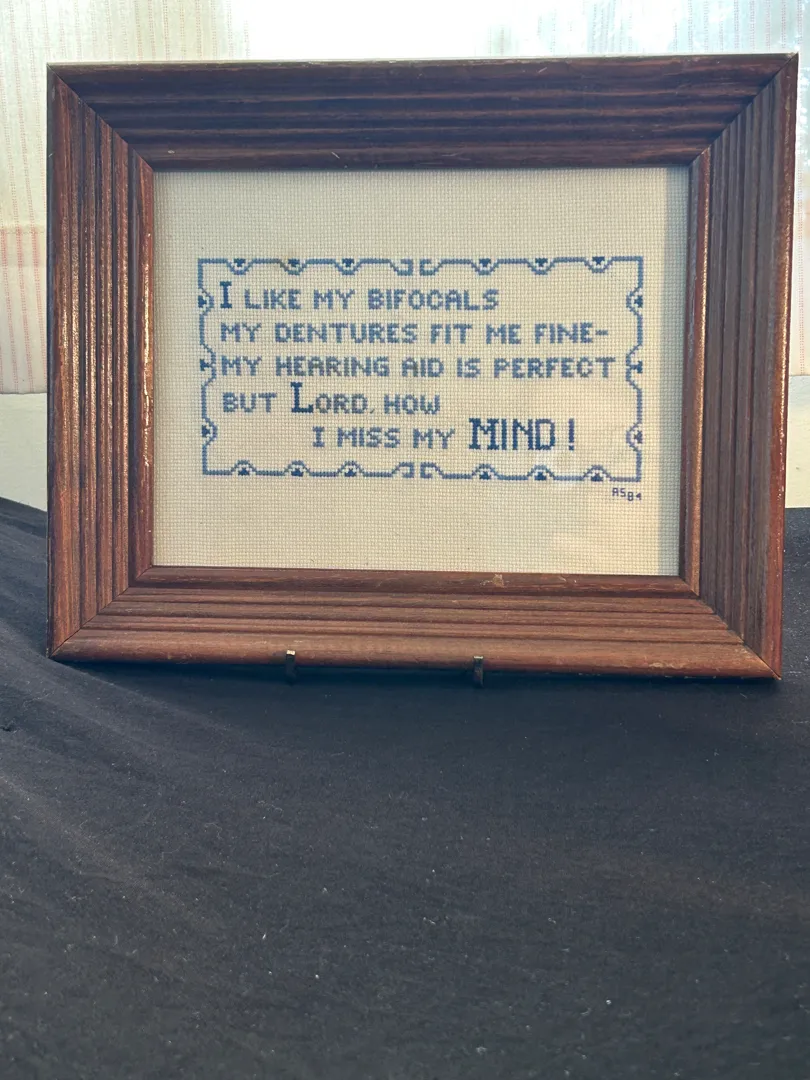 I LIKE MY BIFOCALS
MY DENTURES FIT ME FINE-
MY HEARING AID IS PERFECT
BUT LORD, HOW
I MISS MY MIND!
AS84